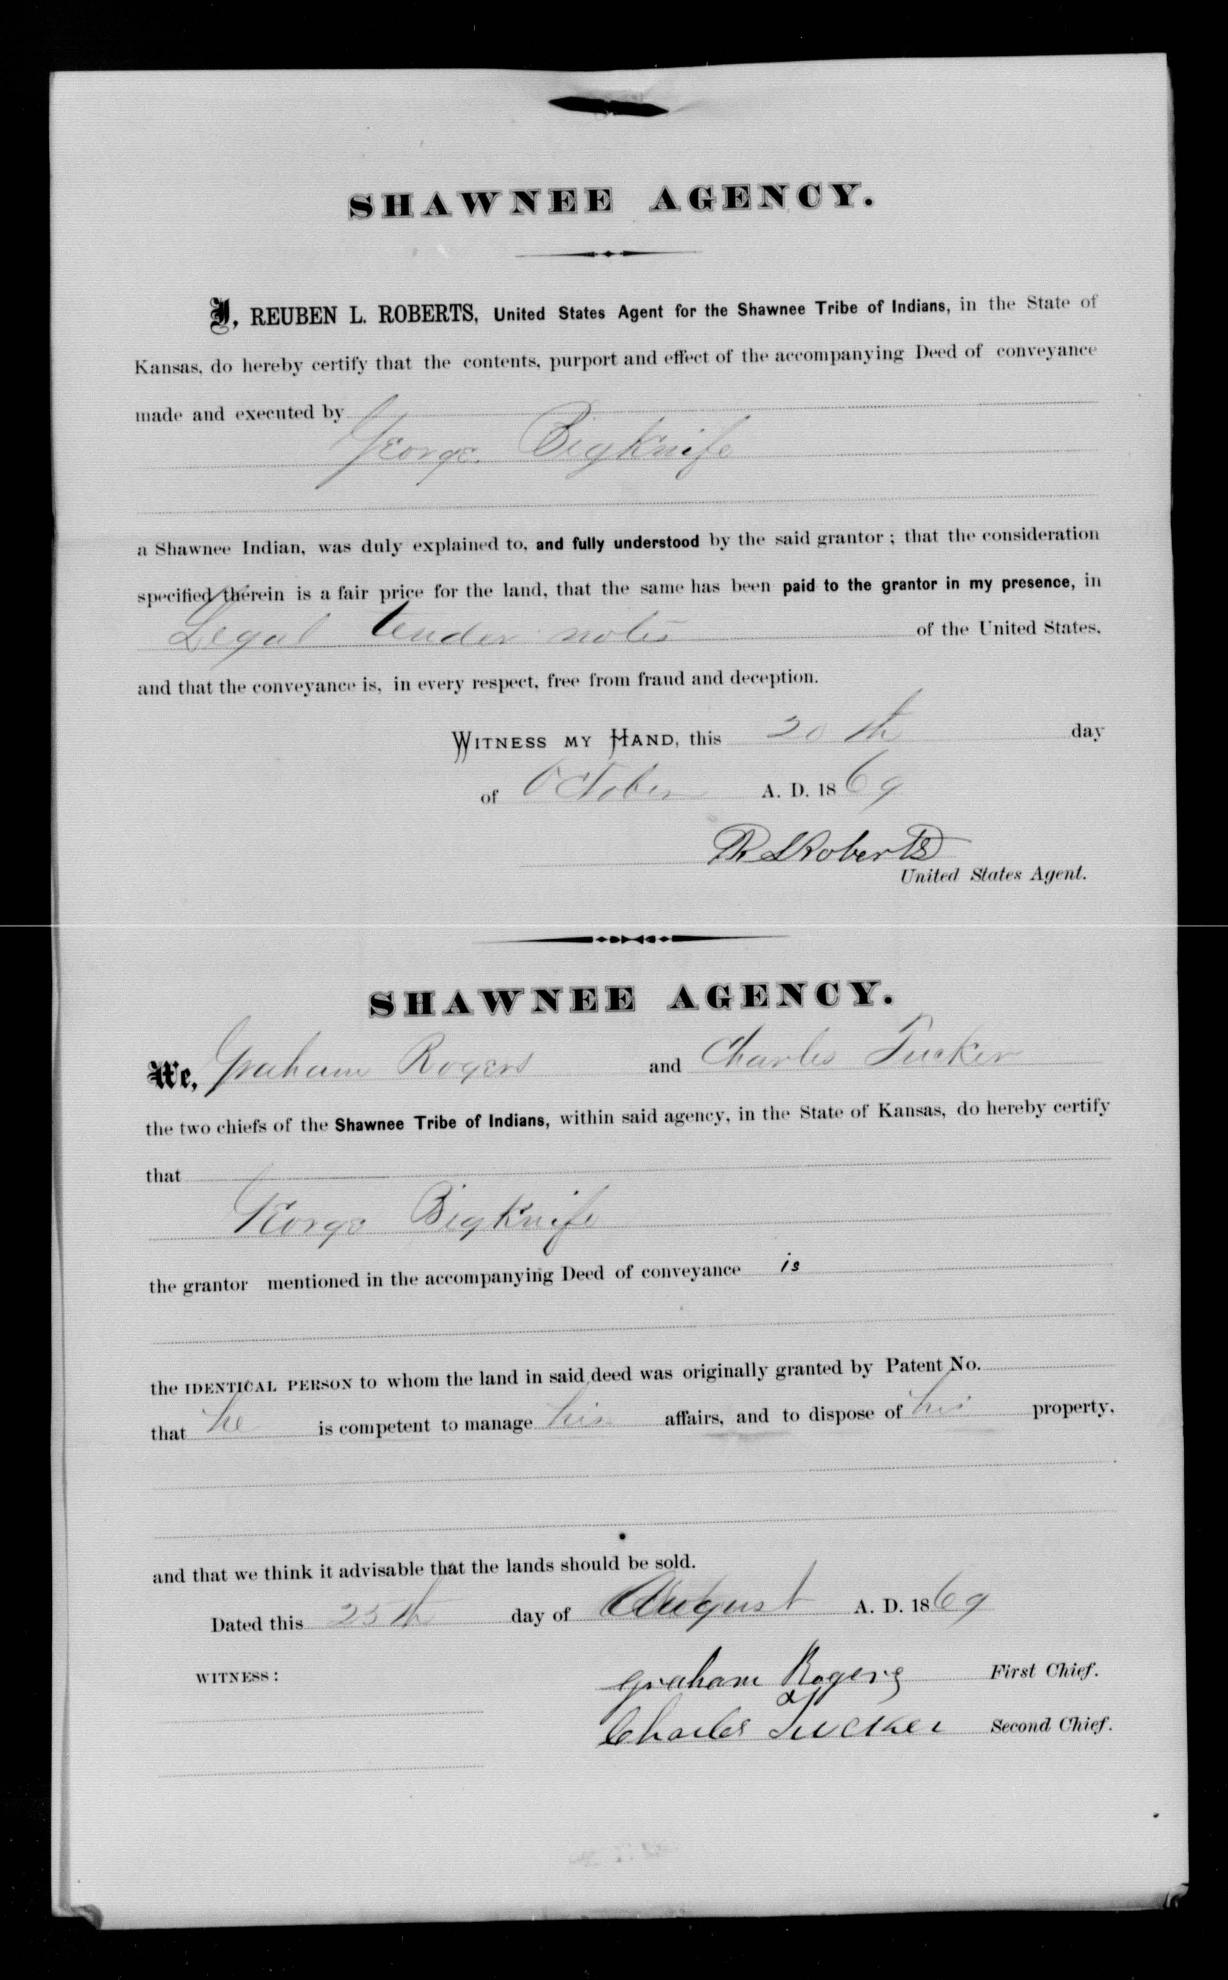 SHAWNEE AGENCY.
I, REUBEN L. ROBERTS, United States Agent for the Shawnee Tribe of Indians, in the State of
Kansas, do hereby certify that the contents, purport and effect of the accompanying Deed of conveyance
made and executed by
George Bigknife
a Shawnee Indian, was duly explained to, and fully understood by the said grantor; that the consideration
specified therein is a fair price for the land, that the same has been paid to the grantor in my presence, in
Legal tender notes of the United States,
and that the conveyance is, in every respect, free from fraud and deception.
WITNESS MY HAND, this 20th day
of October A. D. 1869
R L Roberts
United States Agent.
SHAWNEE AGENCY.
We, Graham Rogers and Charles Tucker
the two chiefs of the Shawnee Tribe of Indians, within said agency, in the State of Kansas, do hereby certify
that
George Bigknife
the grantor mentioned in the accompanying Deed of conveyance is
the IDENTICAL PERSON to whom the land in said deed was originally granted by Patent No.
that he is competent to manage his affairs, and to dispose of his property,
and that we think it advisable that the lands should be sold.
Dated this 25th day of August A. D. 1869
WITNESS:
Graham Rogers First Chief.
Charles Tucker Second Chief.